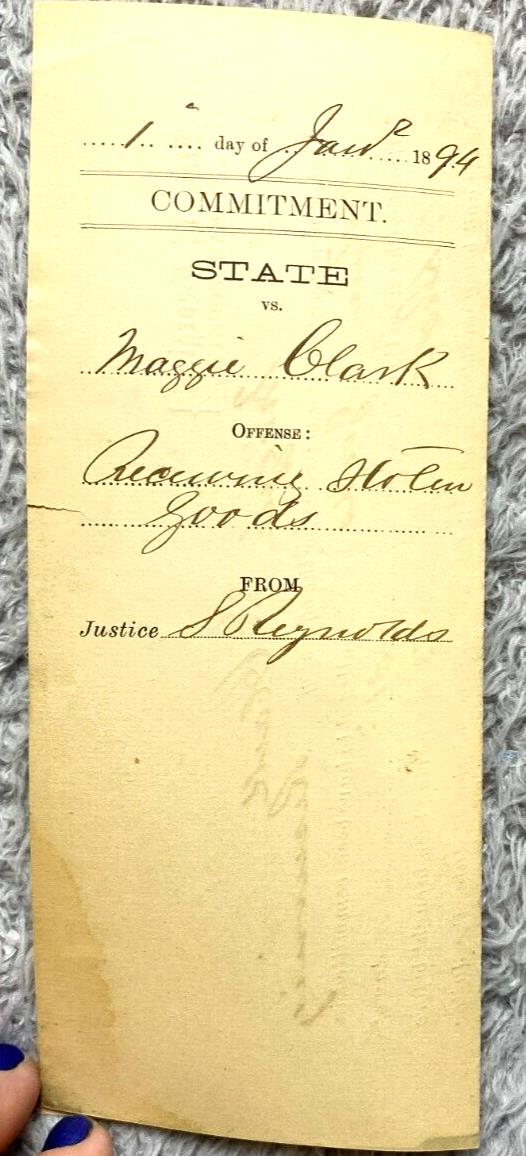 1" day of Jany 1894
COMMITMENT.
STATE
vs.
Maggie Clark
OFFENSE:
Receiving Stolen
Goods
FROM
Justice S Reynolds